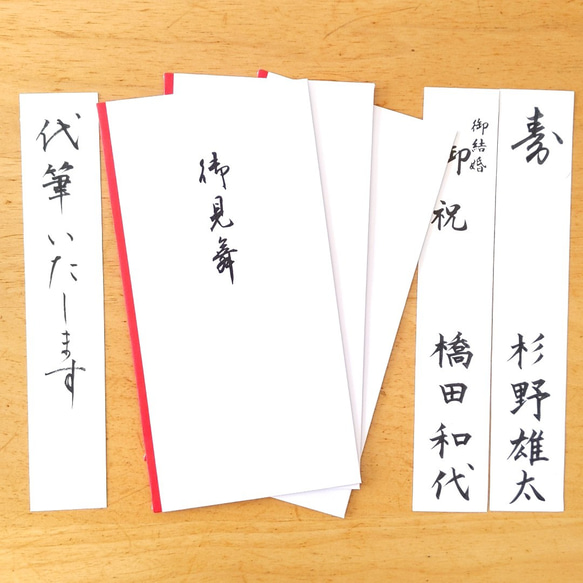 代筆いたします
御見舞
御結婚
御祝
橋田和代
寿
杉野雄太